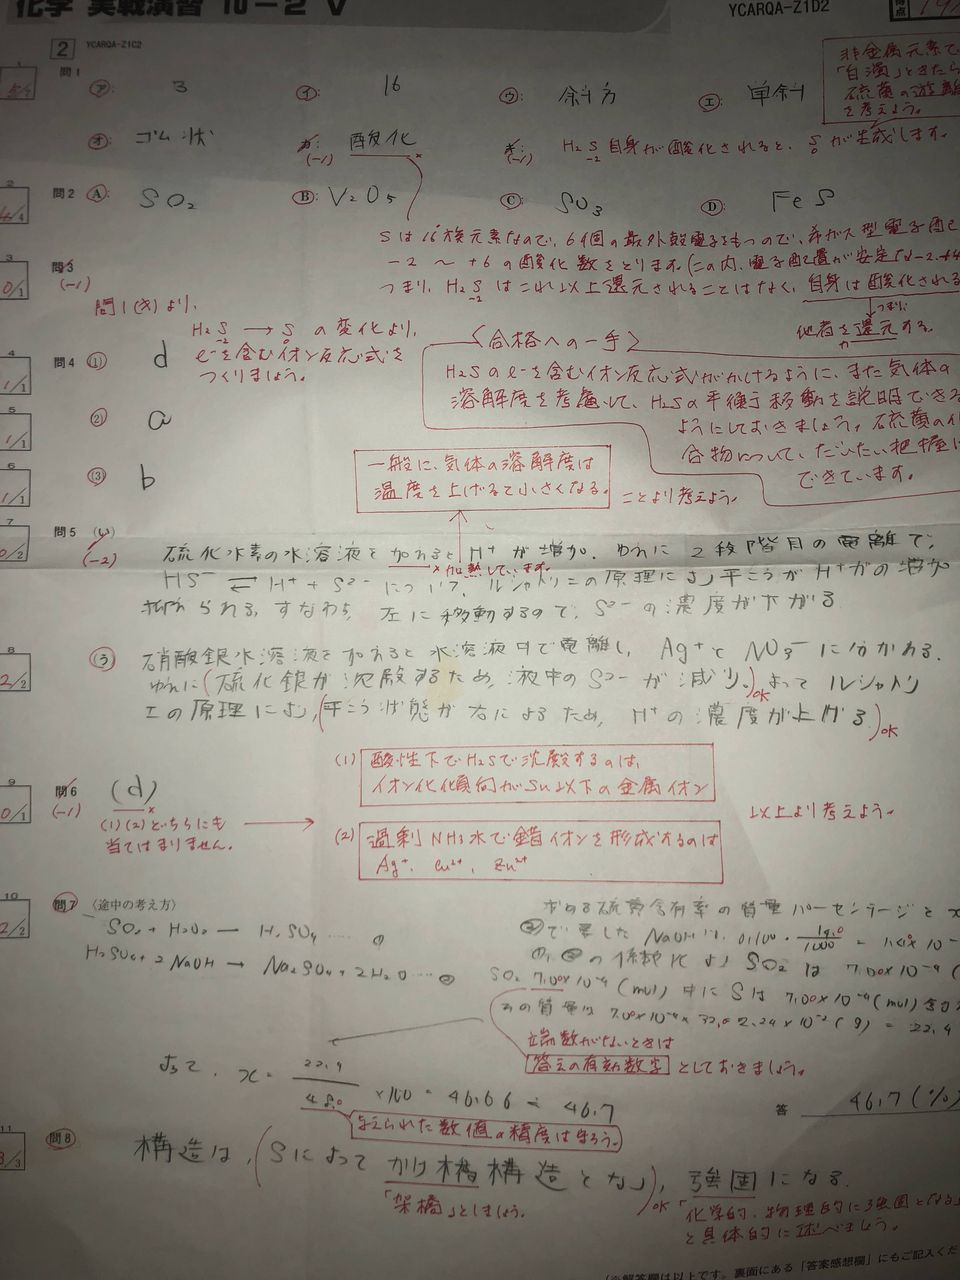 化学 実戦演習 10-2 V
YCARQA-Z1D2
得点
2 YCARQA-Z1C2
問1 ア: 3 イ: 16 ウ: 斜方 エ: 単斜
非金属元素で
「白濁」ときたら
硫黄の遊離
を考えよう。
オ: ゴム状 か: 酸化 (-1) き: (-1) H₂S自身が酸化されると、Sが生成します。
-2 0
問2 A: SO₂ B: V₂O₅ C: SO₃ D: FeS
Sは16族元素なので、6個の最外殻電子をもつので、希ガス型電子配
-2 ~ +6の酸化数をとります。(この内、電子配置が安定な-2,+4
つまり、H₂Sはこれ以上還元されることはなく、自身は酸化される
-2
つまり
他者を還元する。
問3
(-1)
問1(き)より、
H₂S → S の変化より、
-2 0
e⁻を含むイオン反応式を
つくりましょう。
<合格への一手>
H₂Sのe⁻を含むイオン反応式がかけるように、また気体の
溶解度を考慮して、H₂Sの平衡移動を説明できる
ようにしておきましょう。硫黄の化
合物について、だいたい把握は
できています。
問4 ① d
② a
③ b
一般に、気体の溶解度は
温度を上げると小さくなる。
ことより考えよう。
問5 (い)
(-2)
硫化水素の水溶液を加れるとH⁺が増加. ゆれに 2段階目の電離で、
×加熱しています。
HS⁻ ⇄ H⁺+S²⁻ について、ルシャトリエの原理により平こうがH⁺がの増加
抑えられる, すなわち 左に移動するので、S²⁻の濃度が下がる
(う) 硝酸銀水溶液を加えると水溶液中で電離し, Ag⁺とNO₃⁻に分かれる.
ゆれに(硫化銀が沈殿するため, 液中のS²⁻が減少。)OK よって ルシャトリ
エの原理により,(平こう状態が右によるため, H⁺の濃度が上げる)OK
問6 (d)
(-1)
(1)(2)どちらにも
当てはまりません。
(1) 酸性下でH₂Sで沈殿するのは、
イオン化傾向がSn以下の金属イオン
(2) 過剰NH₃水で錯イオンを形成するのは
Ag⁺, Cu²⁺, Zn²⁺
以上より考えよう。
問7 (途中の考え方)
SO₂+H₂O₂ → H₂SO₄ …… ①
H₂SO₄+2NaOH → Na₂SO₄+2H₂O …… ②
求める硫黄含有率の質量パーセンテージをx
SO₂ 7.00×10⁻⁴(mol)中にSは 7.00×10⁻⁴(mol)含
その質量は 7.00×10⁻⁴×32.0=2.24×10⁻²(g) = 22.4
端数がないときは
答えの有効数字としておきましょう。
よって, x= 22.4/48.0 ×100=46.66≒46.7
与えられた数値の精度は守ろう。
答 46.7(%)
問8 構造は,(Sによってかけ橋構造となり)OK, 強固になる.
「架橋」としましょう。
「化学的、物理的に強固となる」
と具体的に述べましょう。
(※解答欄は以上です。裏面にある「答案感想欄」にもご記入くだ